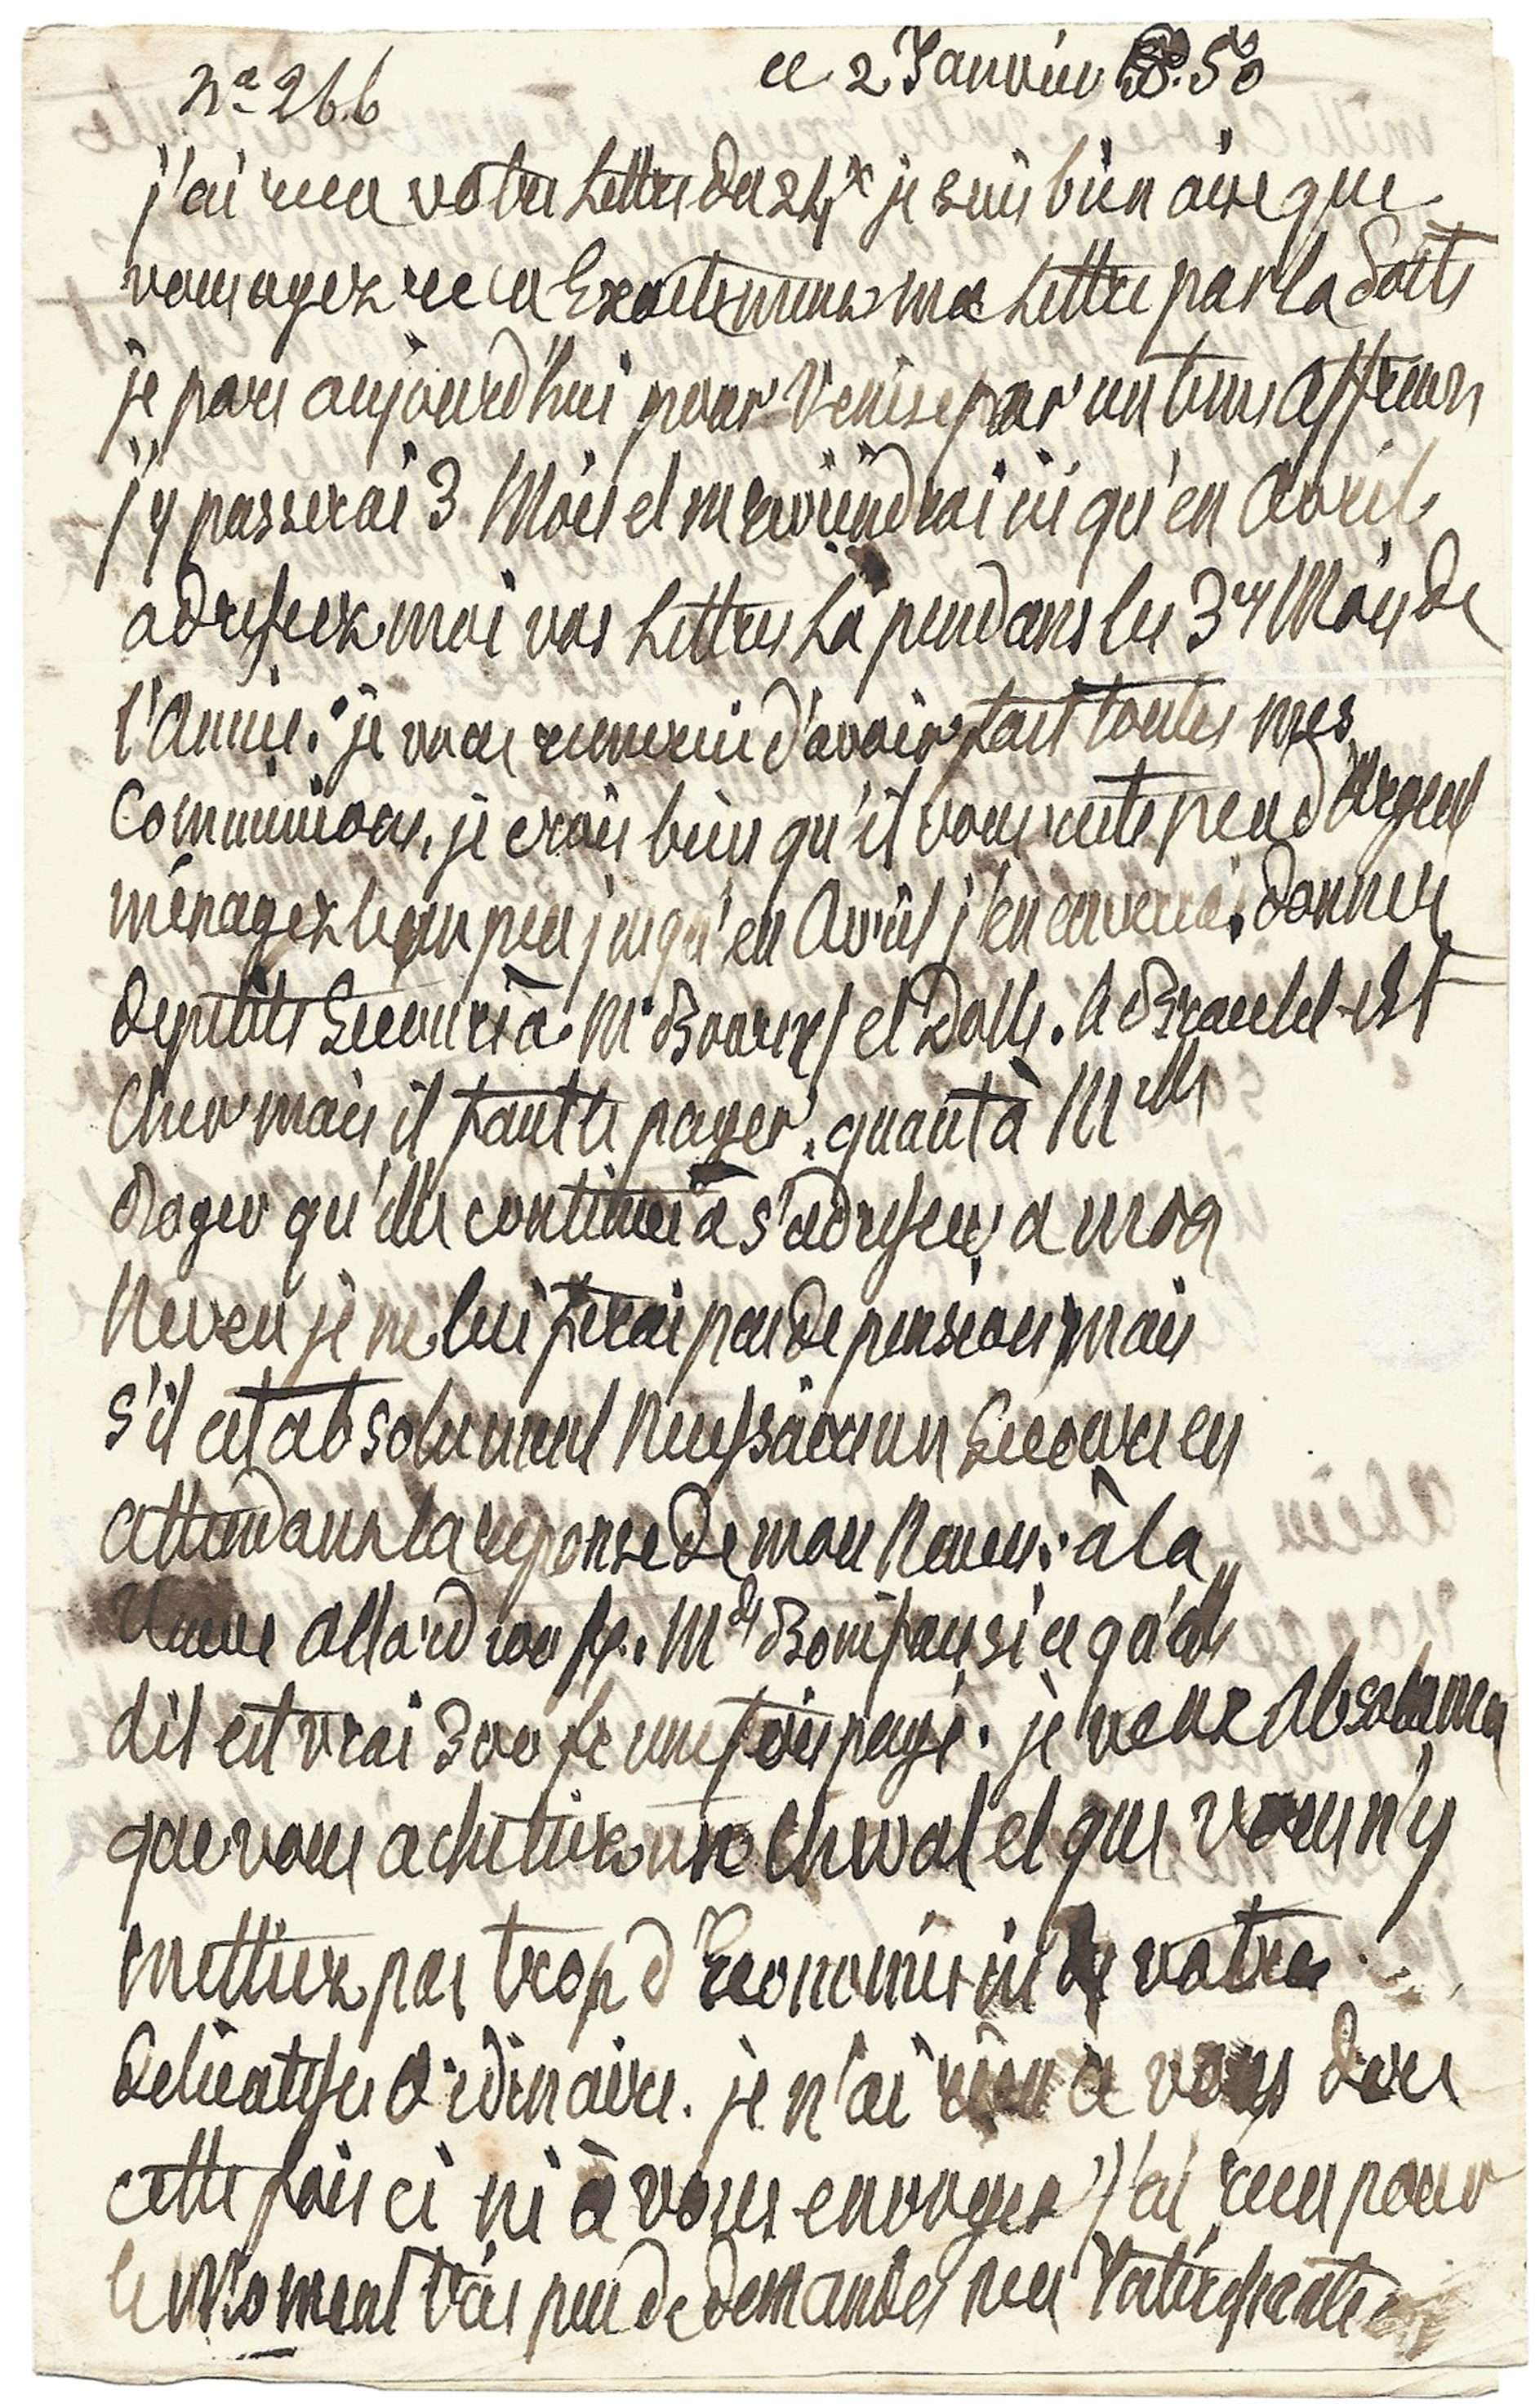 n.° 266
ce 2 Janvier 50
j'ai reçu votre Lettre du 24 x je suis bien aise que
vous ayez reçu Exactement ma Lettre par la Poste
je pars aujourd'hui pour Venise par un tems affreux
j'y passerai 3 Mois et ne reviendrai ici qu'en Avril
adressez moi vos Lettres Là pendans les 3 ers Mois de
l'Année. je vous remercie d'avoir fait toutes mes
Commissions, je crois bien qu'il vous reste peu d'Argent
ménagez le un peu jusqu'en Avril j'en enverrai. donnez
de petits Secours à Mr et . le est
cher mais il faut le payer, quant à Mlle
Roger qu'elle continue à s'adresser a mon
Neveu je ne lui ferai pas de pension, mais
s'il est absolument Nécessaire un Secours en
attendant la reponse de mon Neveu. à la
Veuve Allard 100 fr. Md si ce qu'elle
dit est vrai 300 fr une fois payé. je veux Absolument
que vous achetiez un cheval et que vous n'y
mettiez pas trop d'Economie ni de votre
delicatesse Ordinaire. je n'ai rien a vous dire
cette fois ci ni à vous envoyer j'ai reçu pour
le Moment très peu de demandes peu